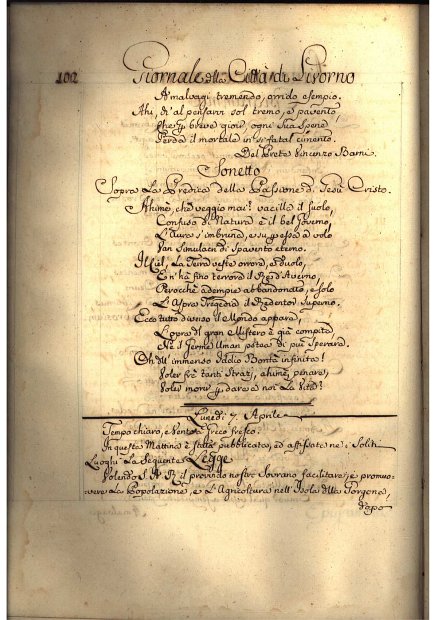 102 Giornale della Città di Livorno
A' malvagi tremendo, orrido esempio.
Ahi, ch'al pensarvi sol tremo, e pavento,
Che p breve gioir, ogni sua spene
Perda il mortale in sì fatal cimento.
Del Prete Vincenzo Barni.
Sonetto
Sopra La Predica della Passione di Gesù Cristo.
Ahimè, che veggio mai! vacilla il suolo,
Confusa di Natura è il bel Governo,
L'Aura s'imbruna, e su essa a volo
Van Simulacri di Spavento eterno.
Il Ciel, La Terra veste orrore, e duolo,
En' hà fino terrore il Rè d'Averno,
Perocchè adempie abbandonato, e solo
L'Aspra Tragedia il Redentor Superno.
Ecco tutto diverso il Mondo appare,
L'opra del gran Mistero è già compita
Nè il Germe Uman potea di più Sperare.
Oh dell' immenso Iddio Bontà infinita!
Voler frà tanti Strazj, ahimè, penare,
Voler morir p dare a noi La Vita!
Lunedì 7. Aprile
Tempo chiaro, e Vento freco fresco.
In questa Mattina è stata pubblicata, ed affissata ne' Soliti
Luoghi La Seguente Legge
Volendo S. A. R. il provido nostro Sovrano facilitare, e promuo-
vere La Popolazione, e L'Agricoltura nell' Isola della Gorgona,
dopo